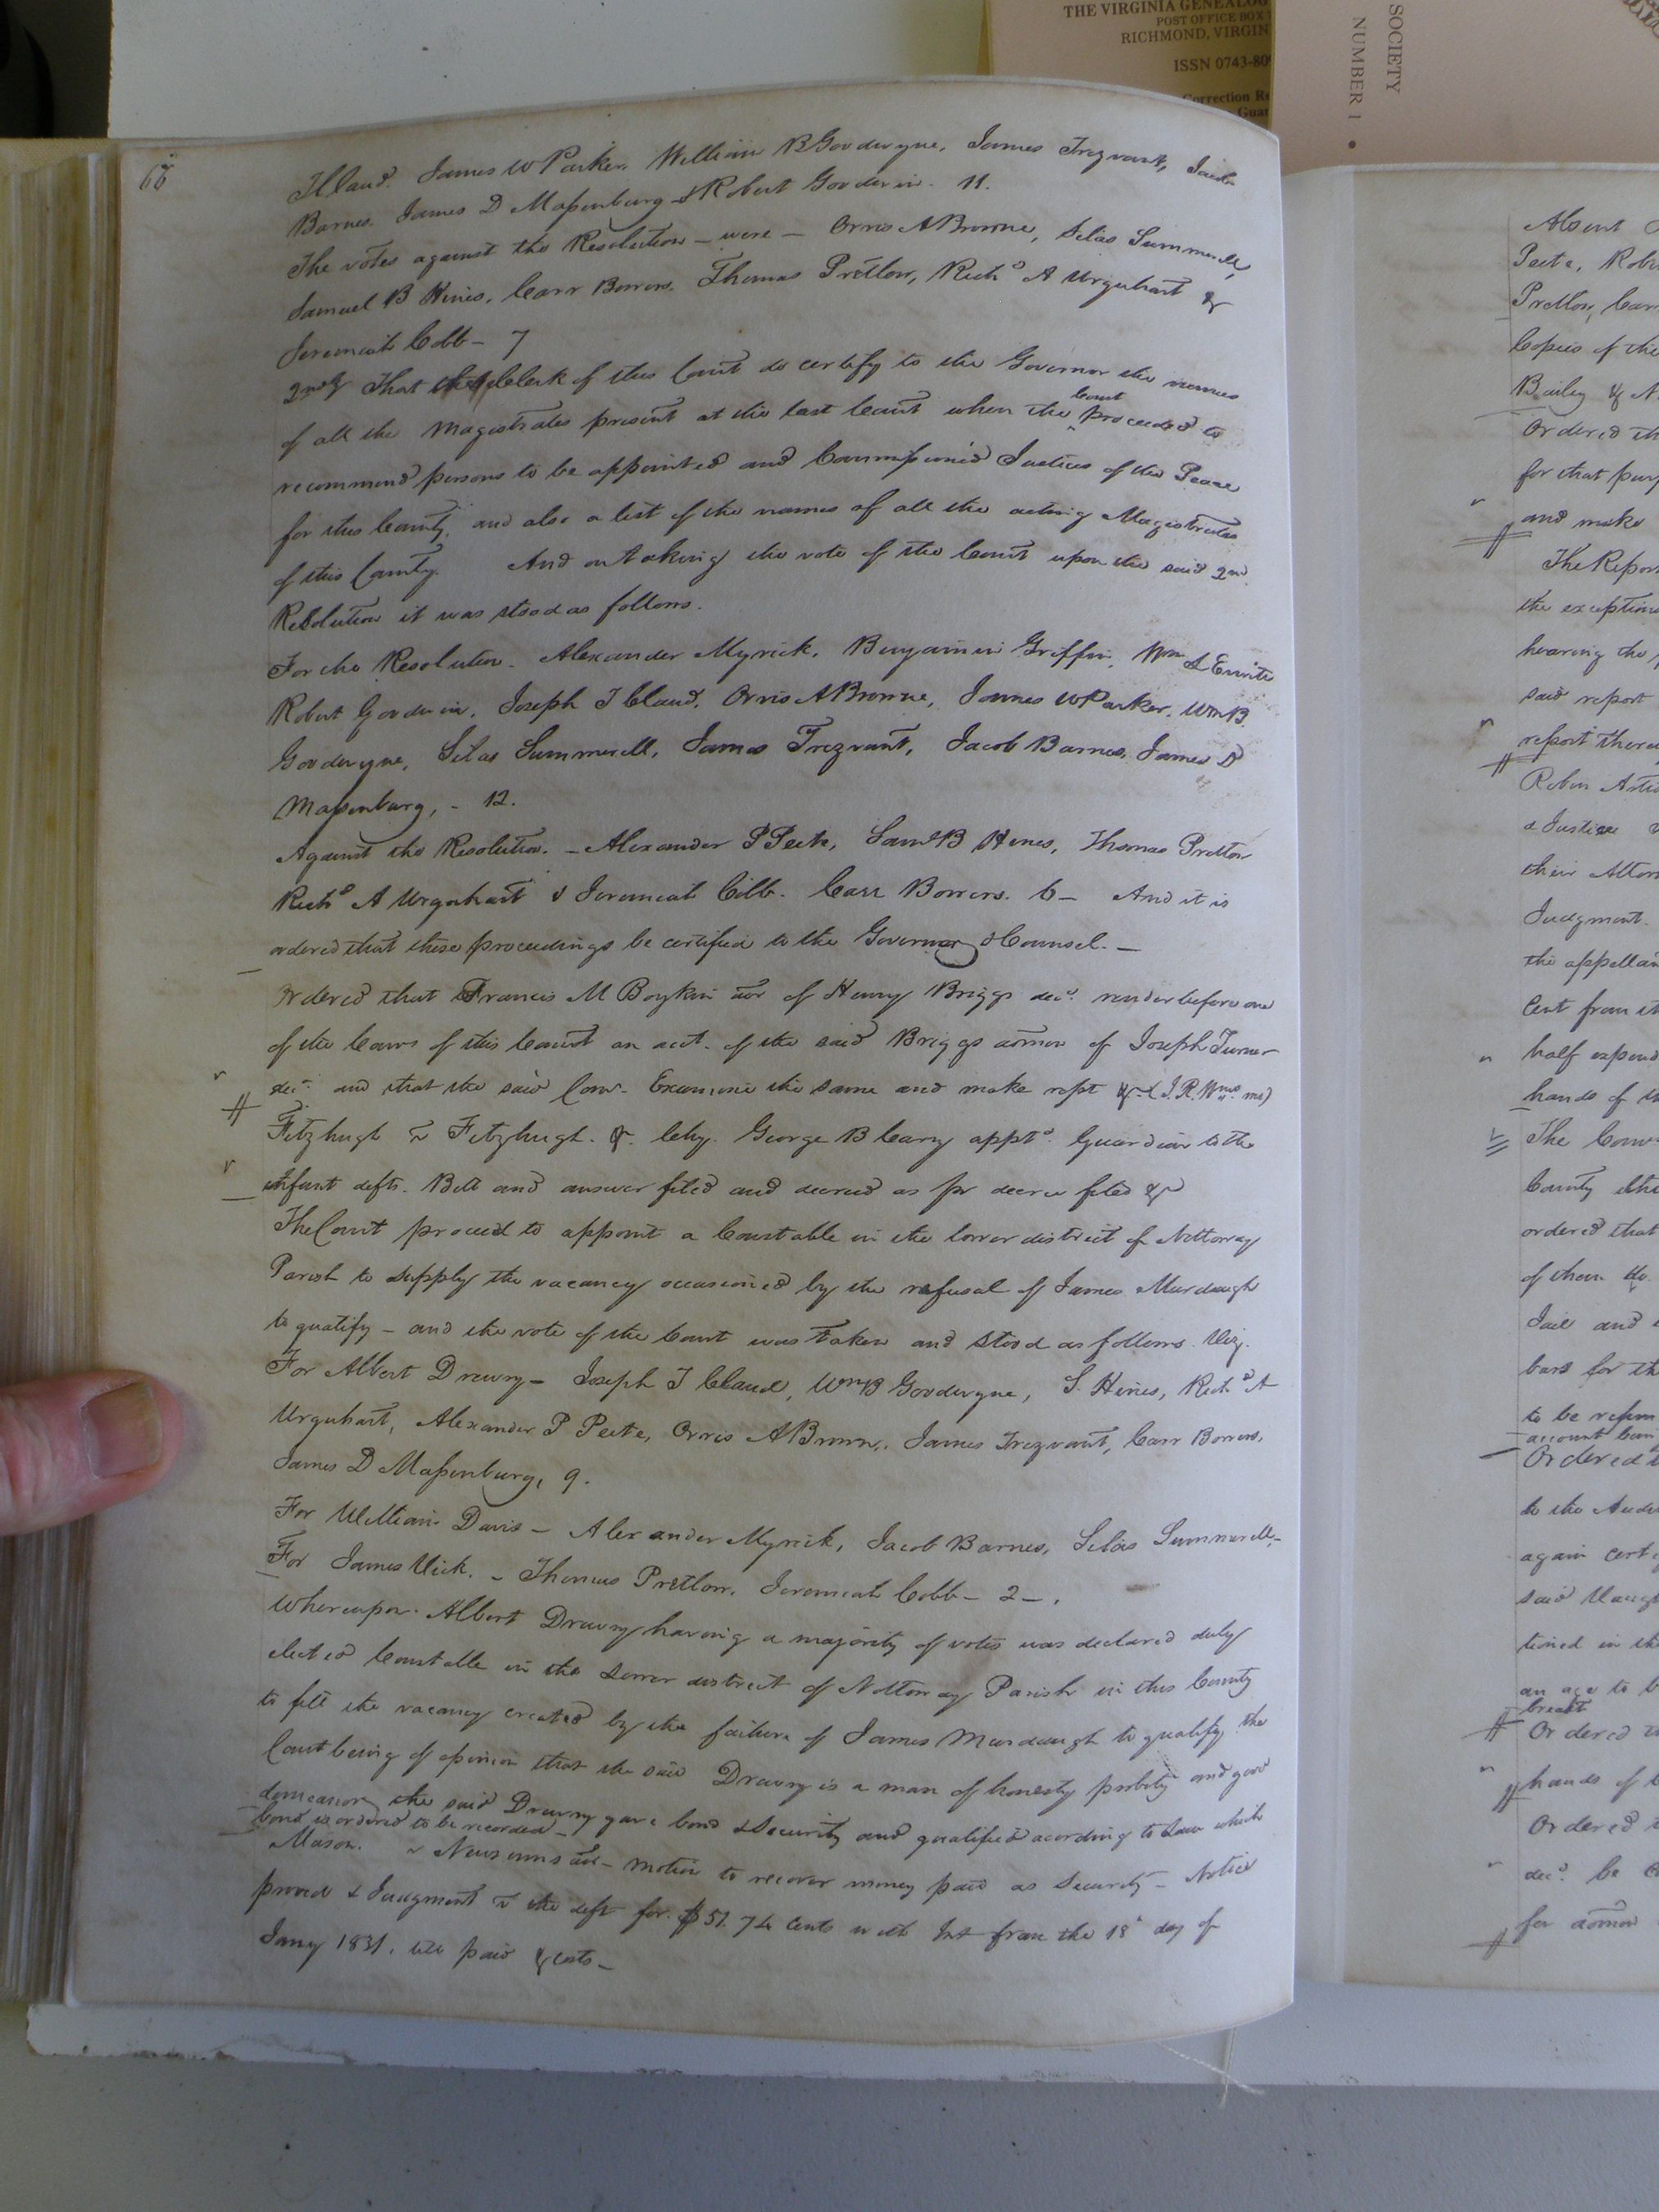 THE VIRGINIA GENEALOG
POST OFFICE BOX
RICHMOND, VIRGIN
ISSN 0743-80
Correction Re
Guar
SOCIETY
NUMBER 1 •
68
Claud. James W Parker. William B Goodwyne, James Trezvant, Jacob
Barnes. James D Massenburg & Robert Goodwin. 11.
The votes against the Resolution — were — Orris A Browne, Silas Summerell,
Samuel B Hines, Carr Bowers. Thomas Pretlow, Richd A Urquhart &
Jeremiah Cobb — 7
2ndly That the Clerk of this Court do certify to the Governor the names
of all the Magistrates present at the last Court when the Court proceeded to
recommend persons to be appointed and Commissioned Justices of the Peace
for this County, and also a list of the names of all the acting Magistrates
of this County. And on taking the vote of the Court upon the said 2nd
Resolution it was stood as follows.
For the Resolution. Alexander Myrick, Benjamin Griffin, Wm
Robert Goodwin, Joseph T Claud, Orris A Browne, James W Parker, Wm B.
Goodwyne, Silas Summerell, James Trezvant, Jacob Barnes, James D
Massenburg, - 12.
Against the Resolution. - Alexander P Peete, Saml B Hines, Thomas Pretlow
Richd A Urquhart & Jeremiah Cobb. Carr Bowers. 6 — And it is
ordered that these proceedings be certified to the Governor & Counsel. —
Ordered that Francis M Boykin aor of Henry Briggs decd. render before one
of the Coms of this Court an acct. of the said Briggs admon of Joseph Turner
decd. and that the said Com. Examine the same and make rept &c (J.R. Wms mo)
Fitzhugh v Fitzhugh. &. Chy. George B Cary apptd. Guardian to the
infant defts. Bill and answer filed and decreed as pr decree filed &c
The Court proceed to appoint a Constable in the lower district of Nottoway
Parish to supply the vacancy occasioned by the refusal of James Murdaugh
to qualify — and the vote of the Court was taken and stood as follows. Viz.
For Albert Drewry — Joseph T Claud, Wm B Goodwyne, S. Hines, Richd A
Urquhart, Alexander P Peete, Orris A Brown, James Trezvant, Carr Bowers,
James D Massenburg, 9.
For William Davis — Alexander Myrick, Jacob Barnes, Silas Summerell, —
For James Vick. - Thomas Pretlow, Jeremiah Cobb — 2 —.
Whereupon Albert Drewry having a majority of votes was declared duly
elected Constable in the Lower district of Nottoway Parish in this County
to fill the vacancy created by the failure of James Murdaugh to qualify. the
Court being of opinion that the said Drewry is a man of honesty probity and good
demeanor the said Drewry gave bond & security and qualified acording to Law which
bond is ordered to be recorded —
Mason. v Newsums aor — motion to recover money paid as Security — Notice
proved & Judgment v the deft for $51.74 cents with Int from the 18th day of
Jany 1831, till paid & costs —
Absent
Peete, Rob
Pretlow, Car
Copies of the
Bailey & N
Ordered th
for that pur
and make
The Repor
the exceptions
hearing the
said report
report there
Robin Arti
& Justice
their Attor
Judgment.
the appellan
Cent from
half expend
hands of th
The Com
County
ordered that
of them
Jail and
bars for th
to be refun
account
Ordered
to the Aud
again cert
said Vaugh
tioned in th
an age to b
breast
Ordered
hands of
Ordered
decd. be
for admon